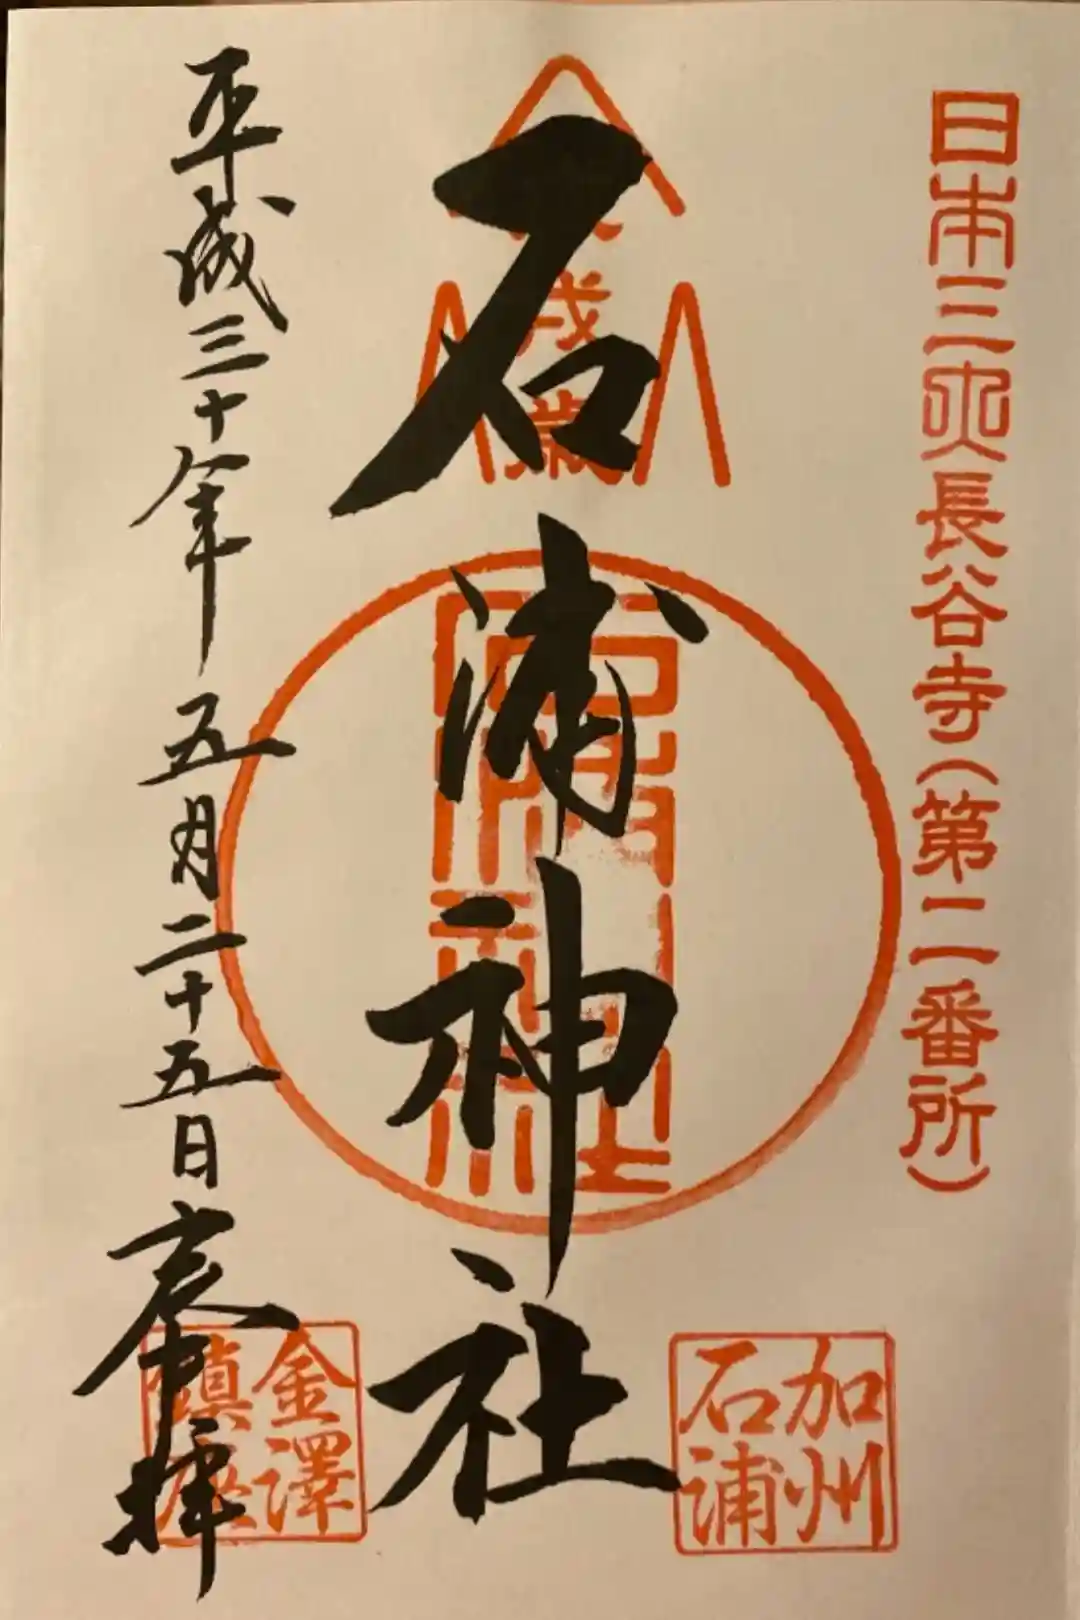 日本三大長谷寺（第二番所）
加州
石浦
戌歳
石浦神社
石浦神社
平成三十年五月二十五日奉拝
金澤
鎮座